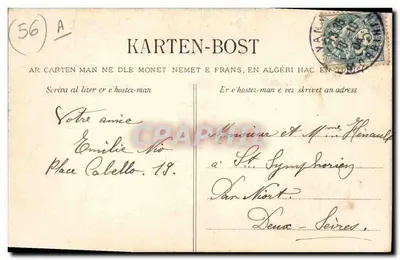 (56) A
KARTEN-BOST
AR CARTEN MAN NE DLE MONET NEMET E FRANS, EN ALGÉRI HAC EN
Scrivu al liter er c'hostez-man
Er c'hostez-man e vez skrivet an adress
Votre amie
Emilie Nio
Place Cabello. 19.
Monsieur et Mme Hénault
à St. Symphorien
Par Niort
Deux-Sèvres.